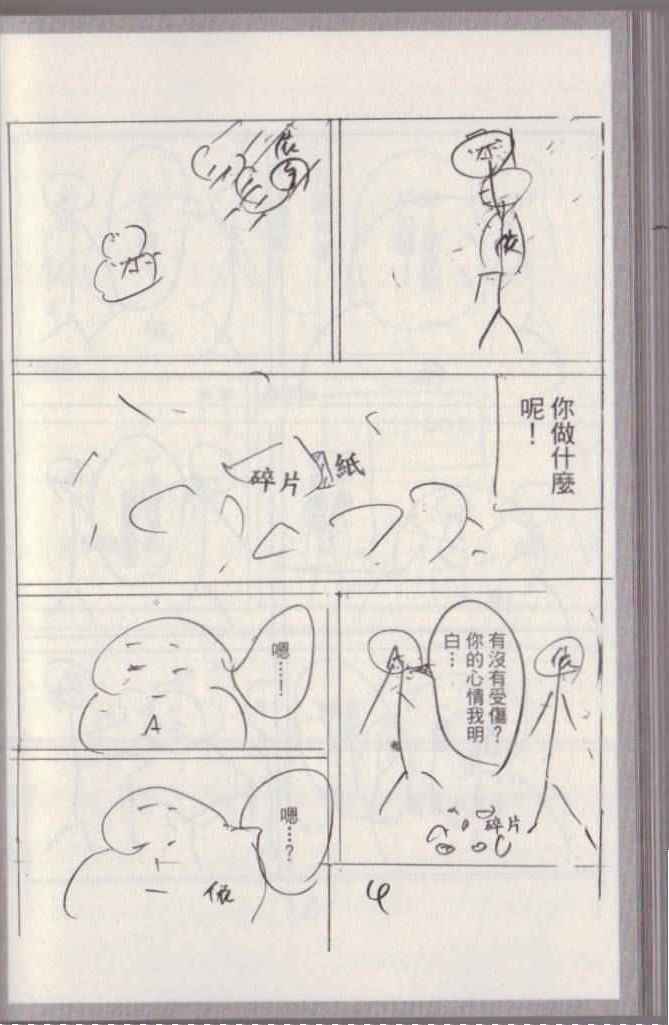 依
你做什麼
呢！
碎片
紙
有沒有受傷？
你的心情我明
白…
A
依
碎片
嗯…！
A
嗯…？
依
4